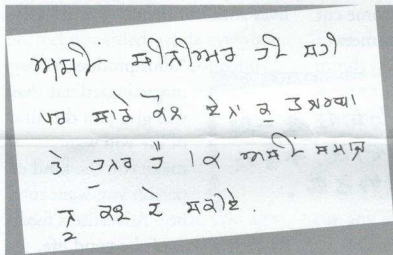 ਅਸੀਂ ਸੀਨੀਅਰ ਹੀ ਸਹੀ
ਪਰ ਸਾਡੇ ਕੋਲ ਏਨਾ ਕੁ ਤਜਰਬਾ
ਤੇ ਹੁਨਰ ਹੈ ਕਿ ਅਸੀਂ ਸਮਾਜ
ਨੂੰ ਕੁਝ ਦੇ ਸਕੀਏ.